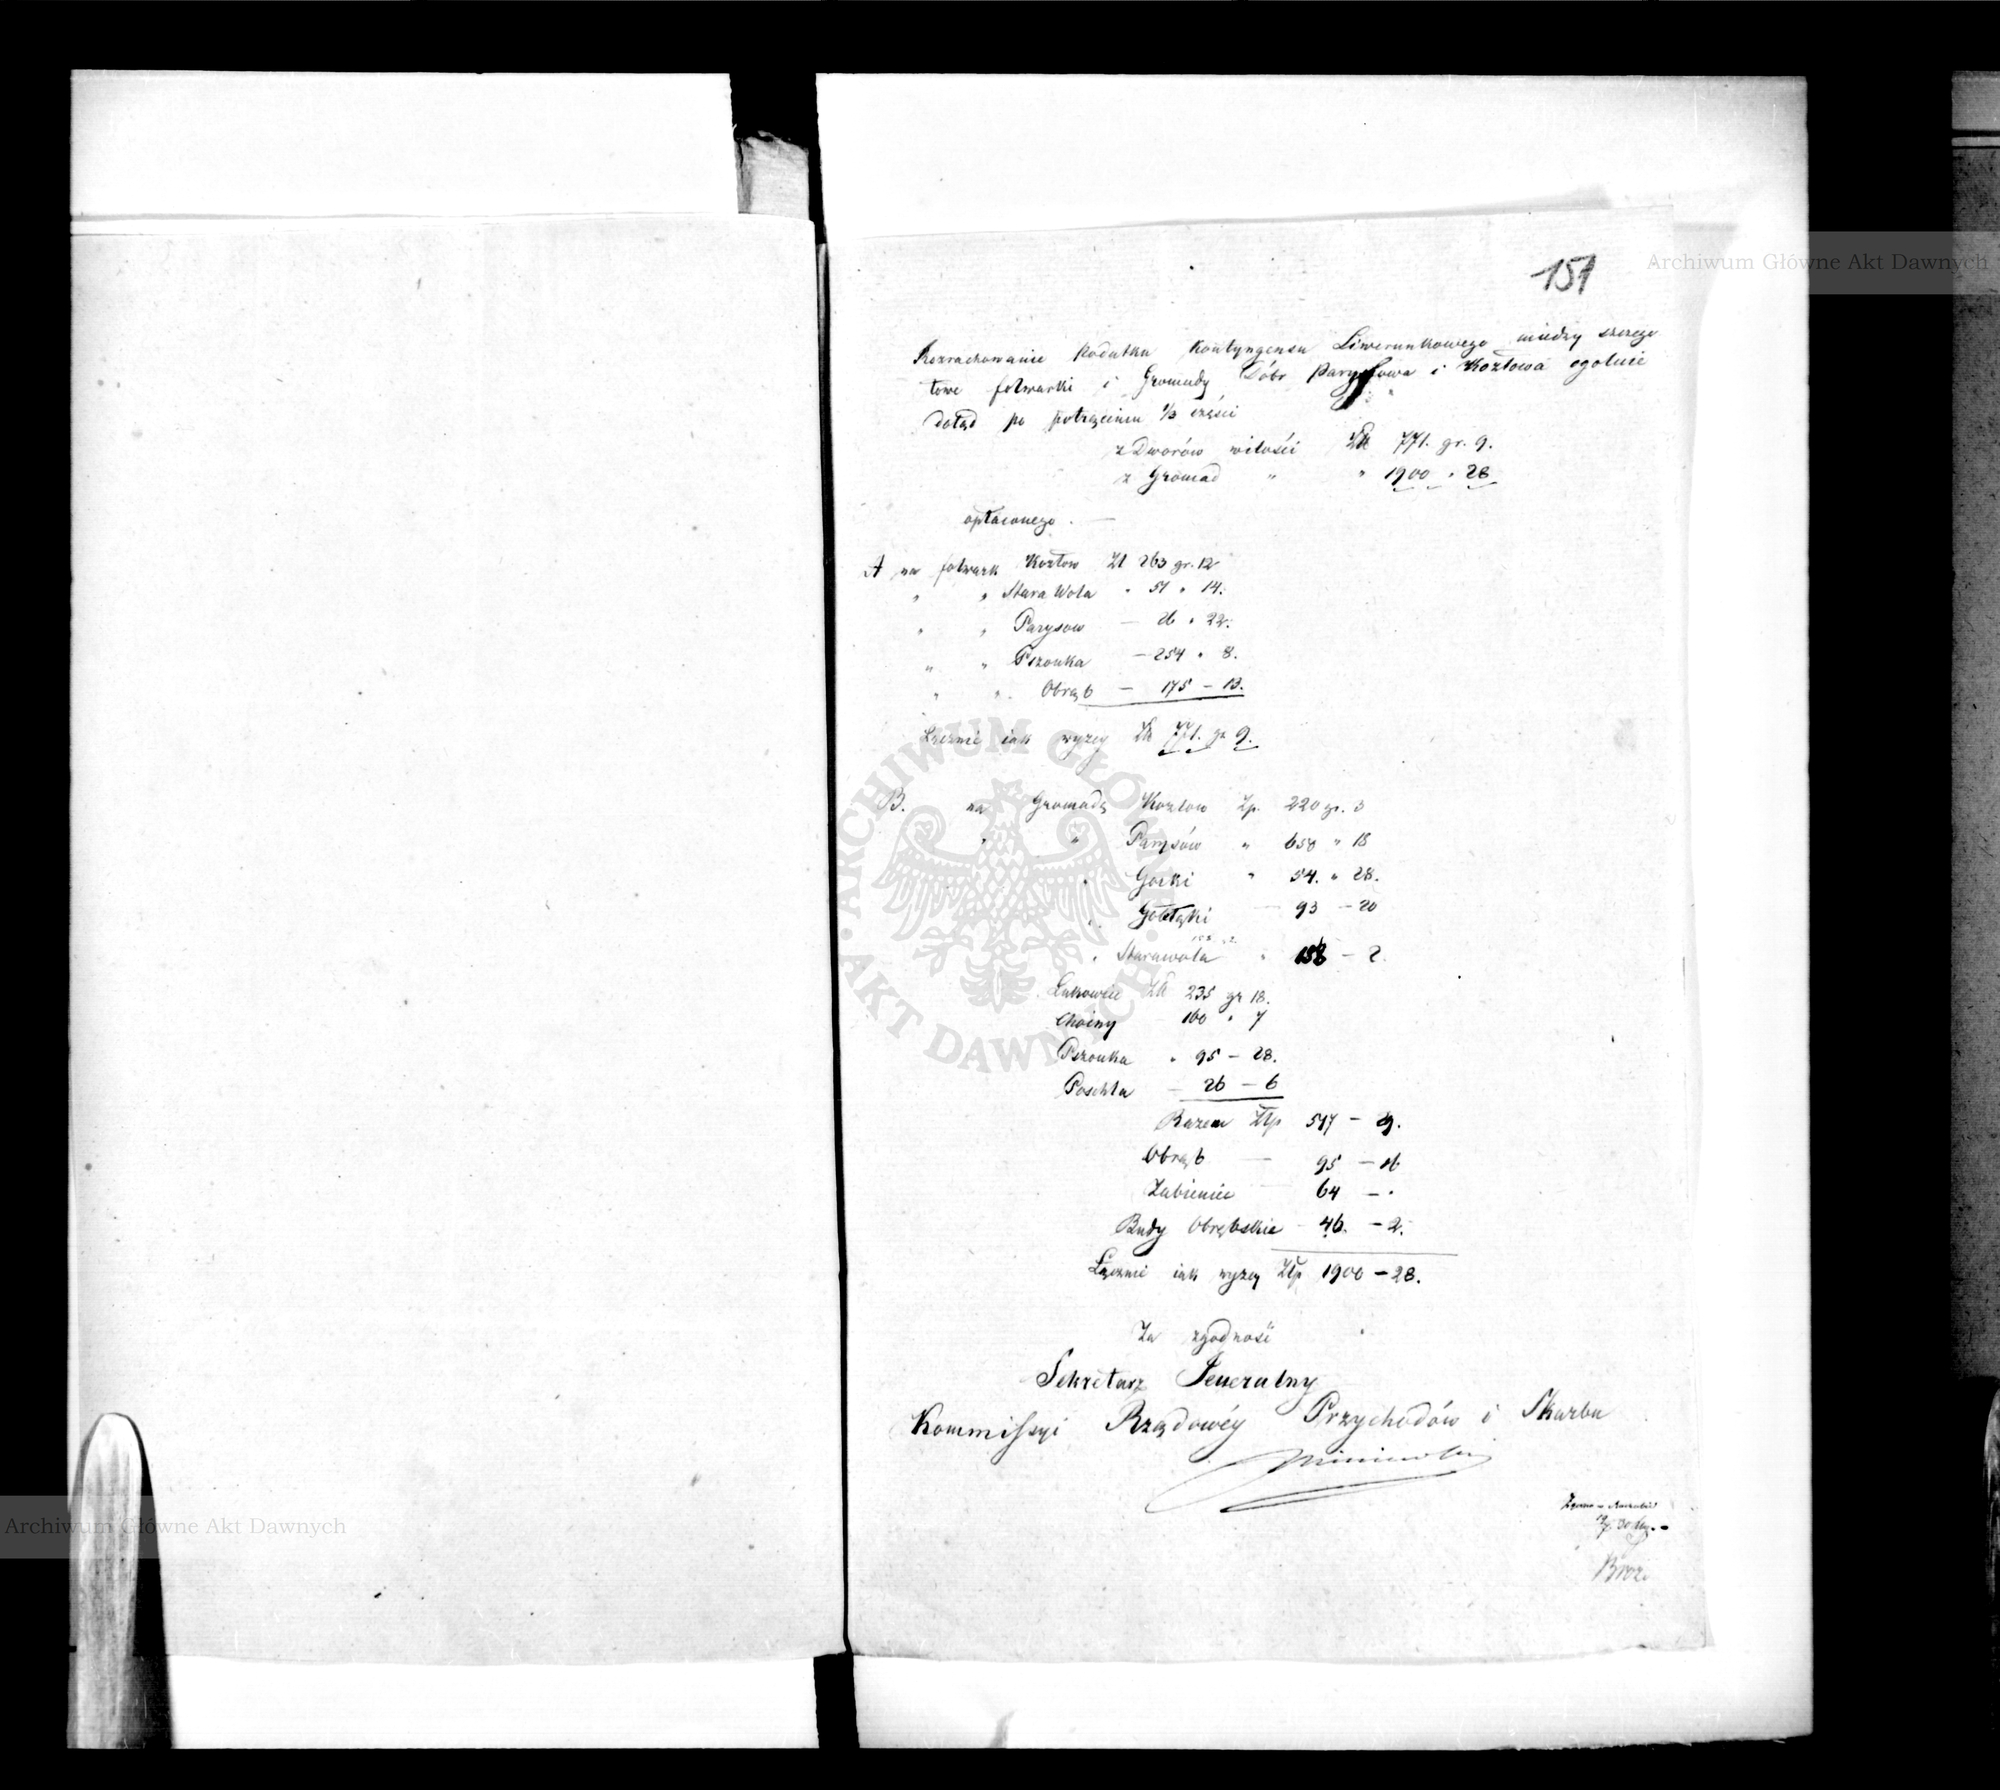 151
Archiwum Główne Akt Dawnych
Rozrachowanie Podatku Kontyngensu Liwerunkowego między szczegó
łowe folwarki i Gromady Dóbr Parysowa i Kozłowa ogólnie
dotąd po potrąceniu 1/3 części
z Dworów wiłości Złł 771. gr. 9.
z Gromad " " 1900 " 28
opłaconego. —
A na folwark Kozłow Zł 263 gr. 12
" " Stara Wola " 51 " 14.
" " Parysow — 26 " 22.
" " Pszonka — 254 " 8.
" " Obrąb — 175 — 13.
Łącznie iak wyżey Złł 771. gr 9.
B. na Gromadę Kozłow Zp. 220 gr. 3
" " Parysów " 658 " 18
" Gocki " 54. " 28.
" Gołłąki — 93 — 20
" Starawola " 158 — 2.
Łukowiec Złł 235 gr 18.
Choiny 160 " 7
Pszonka " 95 — 28.
Poschła — 26 — 6
Razem Złp 517 — 29.
Obrąb — 95 — 16
Żabieniec 64 — "
Budy Obrębskie — 46. — 2.
Łącznie iak wyżey Złp 1900 — 28.
Za zgodność
Sekretarz Jeneralny
Kommissyi Rządowéy Przychodów i Skarbu
ARCHIWUM GŁÓWNE AKT DAWNYCH
Archiwum Główne Akt Dawnych